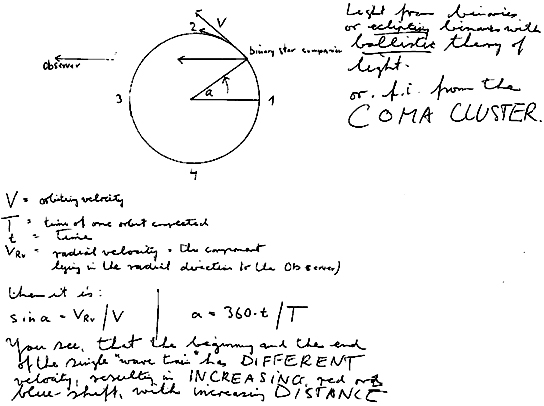 5
V
2
Observer
binary star companion
a
3
1
4
Light from binaries
or eclipting binaries with
ballistic theory of
light.
or f.i. from the
COMA CLUSTER.
V = orbiting velocity
T = time of one orbit completed
t = time
VRv = radial velocity = the component
lying in the radial direction to the Observer)
then it is:
sin a = VRv/V | a = 360·t/T
You see, that the beginning and the end
of the single "wave train" has DIFFERENT
velocity, resulting in INCREASING, red or
blue-shift, with increasing DISTANCE